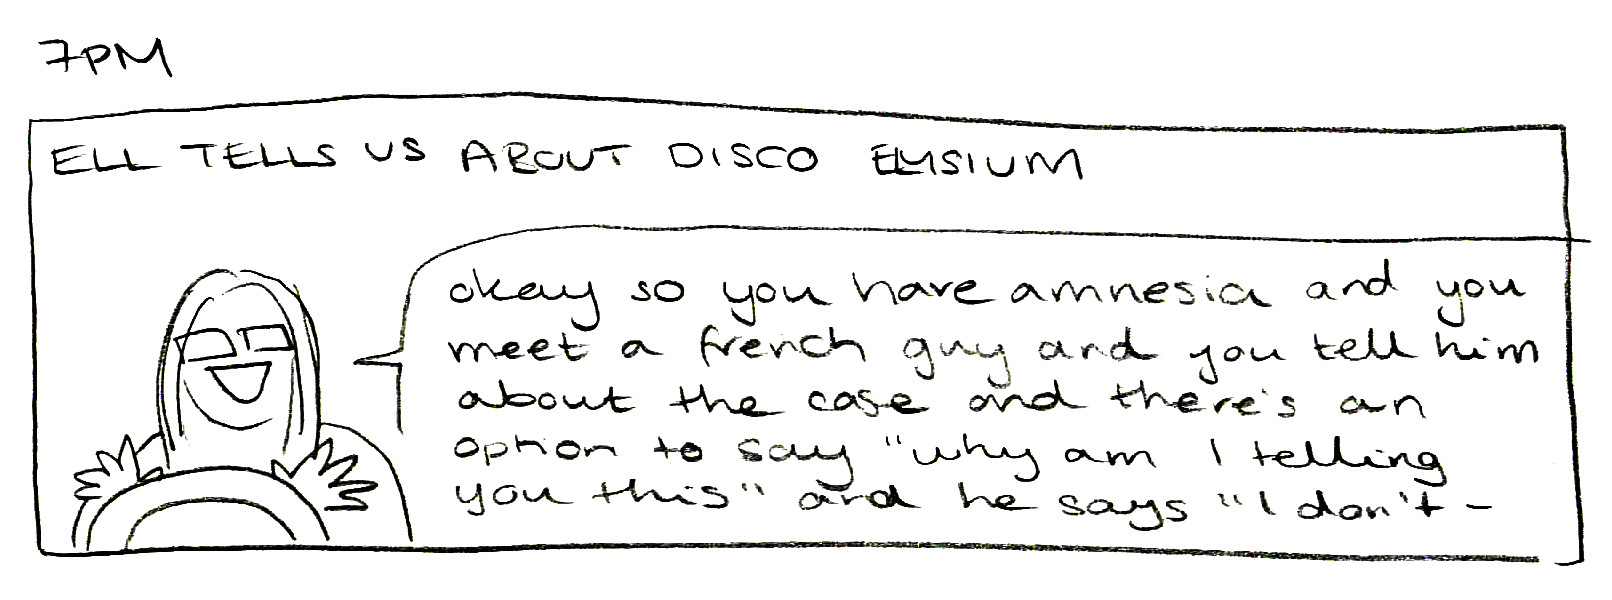 7PM
ELL TELLS US ABOUT DISCO ELYSIUM
okay so you have amnesia and you
meet a french guy and you tell him
about the case and there's an
option to say "why am I telling
you this" and he says "I don't -